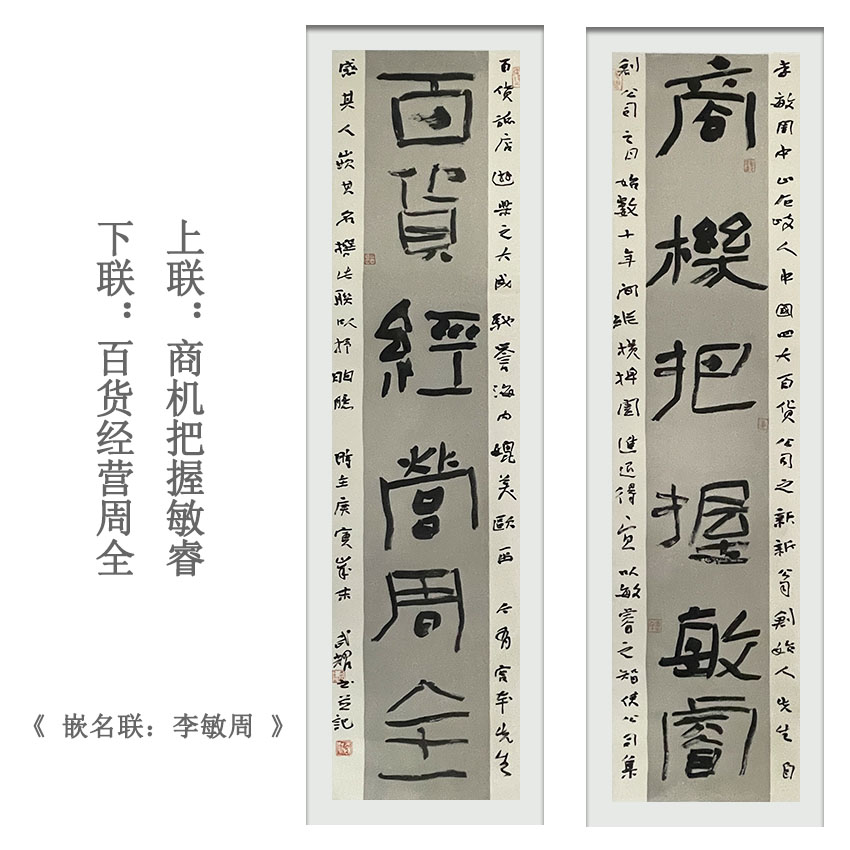 上联：商机把握敏睿
下联：百货经营周全
《 嵌名联：李敏周 》
李敏周中山石岐人中國四大百货公司之新新公司創始人先生自
商機把握敏睿
創公司之日始數十年间縱横捭闔進退得宜以敏睿之智使公司集
百货旅店遊樂之大成馳譽海内媲美歐西今有先生
百貨經營周全
感其人嵌其名撰此联以抒胸臆時在庚寅歲末书並記